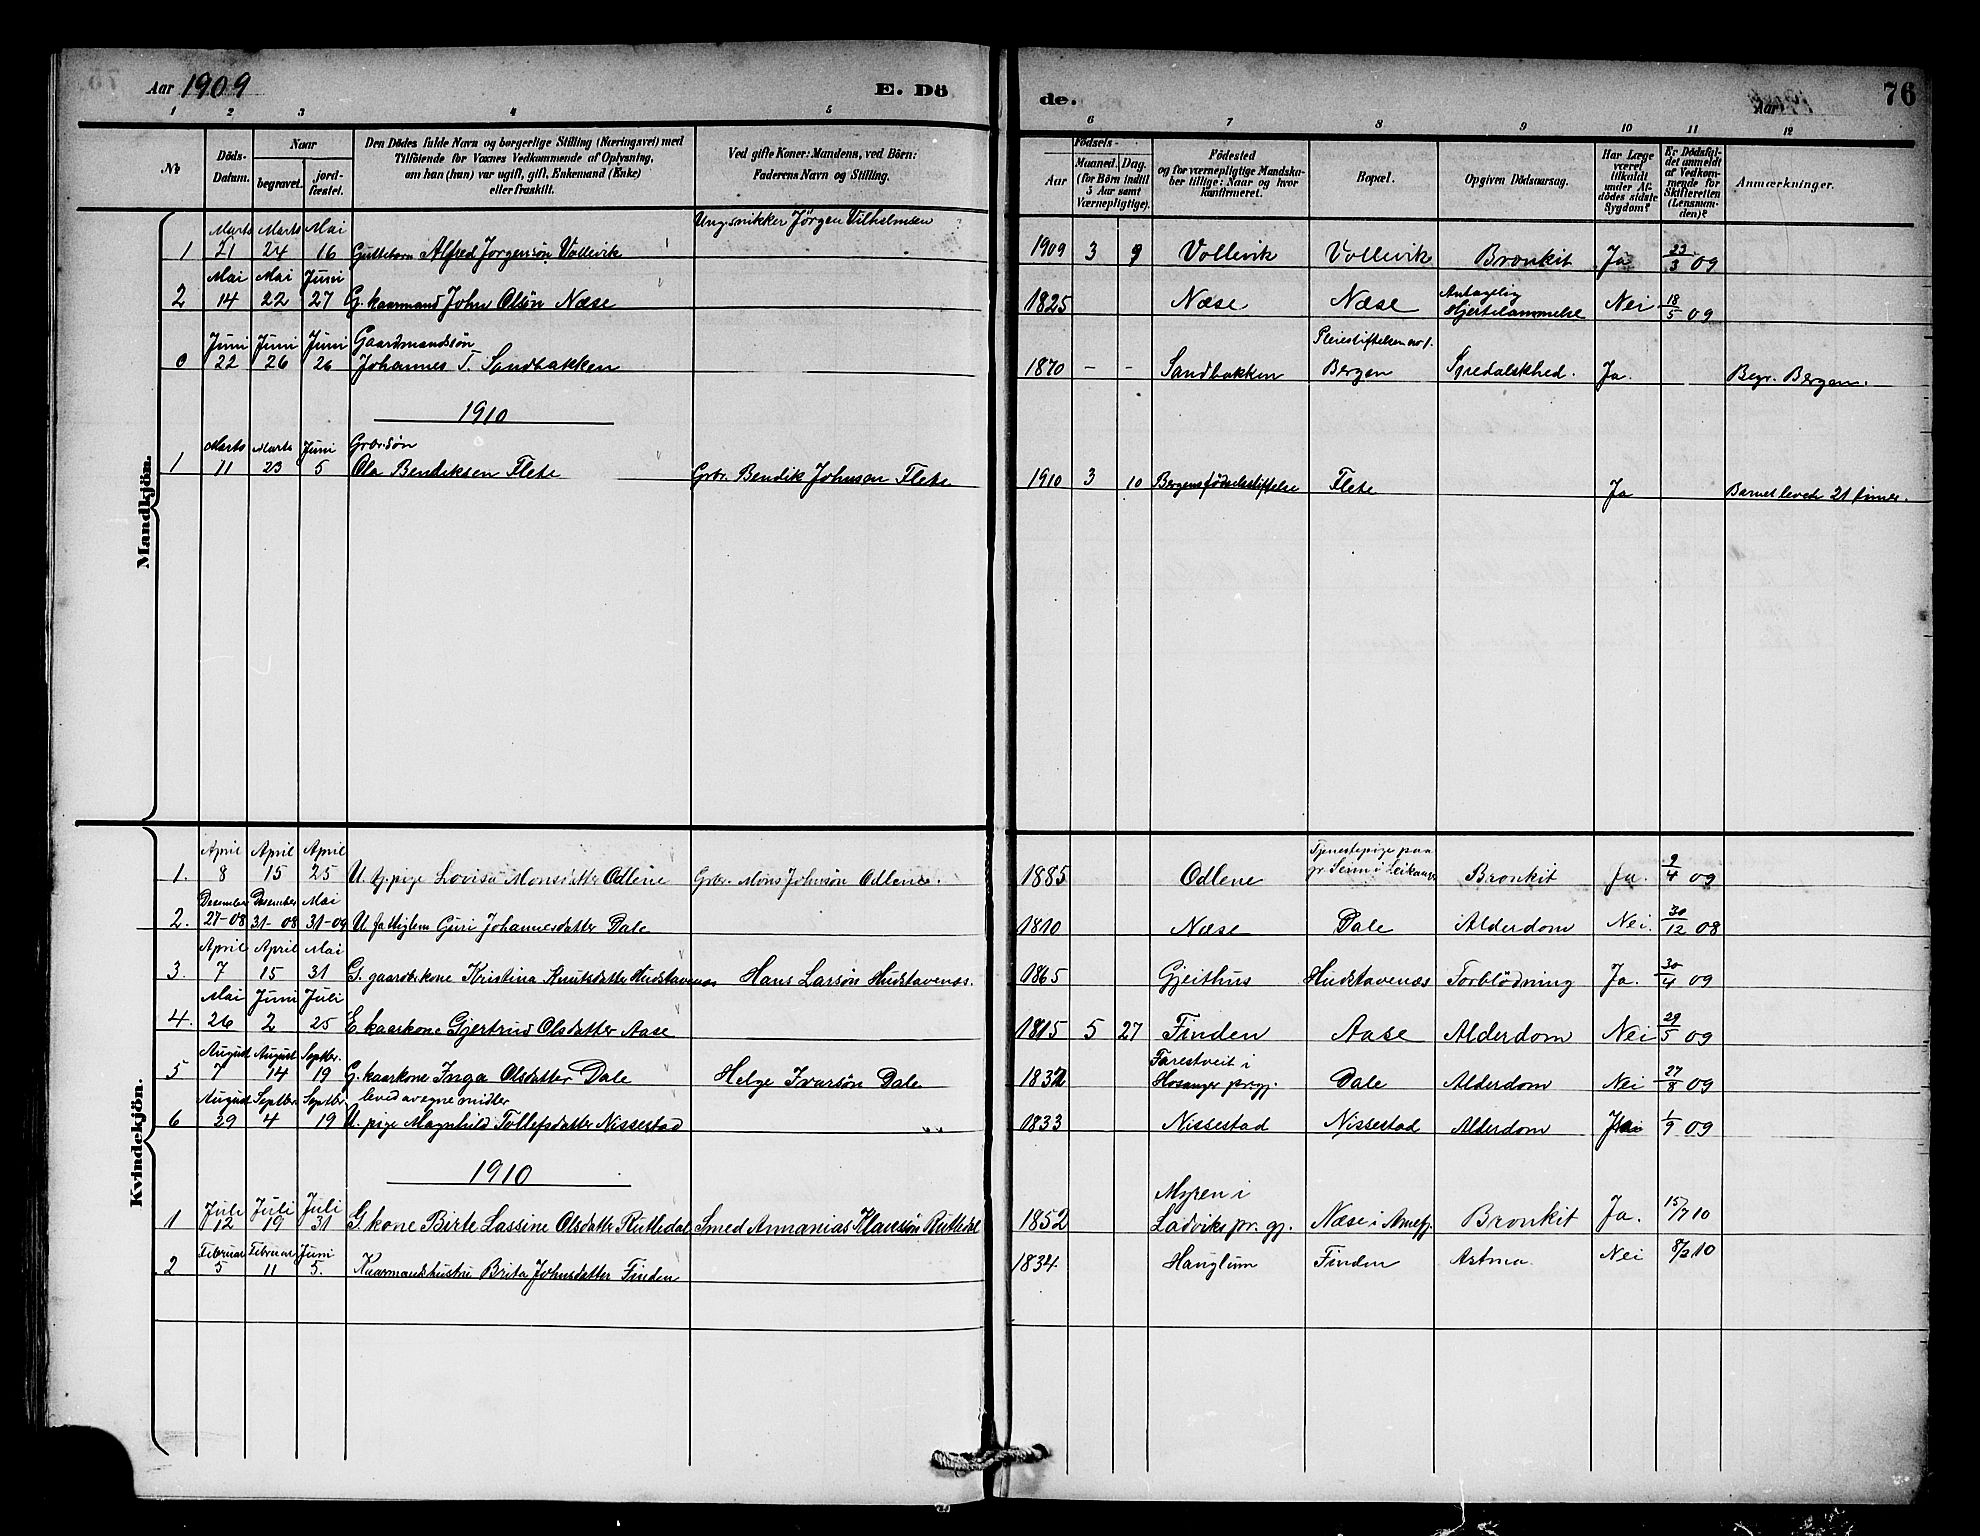 Aar 1909
E. Dö
de.
Aar
76
1 2 3 4 5 6 7 8 9 10 11 12
No
Döds-Datum.
Naar
begravet.
jord-fæstet.
Den Dödes fulde Navn og borgerlige Stilling (Næringsvei) med
Tilföiende for Voxnes Vedkommende af Oplysning,
om han (hun) var ugift, gift, Enkemand (Enke)
eller fraskilt.
Ved gifte Koner: Mandens, ved Börn:
Faderens Navn og Stilling.
Födsels-
Aar
Maaned. Dag.
(for Börn indtil
5 Aar samt
Værnepligtige).
Födested
og for værnepligtige Mandska-
ber tillige: Naar og hvor
konfirmeret.
Bopæl.
Opgiven Dödsaarsag.
Har Læge
været
tilkaldt
under Af-
dödes sidste
Sygdom?
Er Dödsfal-
det anmeldt
af Vedkom-
mende for
Skifteretten
(Lensman-
den)?
Anmærkninger.
Mandkjön.
1 Marts 21 Marts 24 Mai 16 Guttebarn Alfred Jörgensön Vollevik Ungsnikker Jörgen Vilhelmsen 1909 3 9 Vollevik Vollevik Bronkit Ja 23/3 09
2 Mai 14 Mai 22 Juni 27 G. kaarmand John Olsön Næse 1825 Næse Næse Antagelig Hjertelammelse Nei 18/5 09
0 Juni 22 Juni 26 Juni 26 Gaardmandssön Johannes T. Sandbakken 1870 - - Sandbakken Pleiestiftelsen no 1. Bergen Spedalskhed. Ja. Begr. Bergen.
1910
1 Marts 11 Marts 23 Juni 5 Grbr.sön Ola Bendiksen Flete Grbr. Bendik Johnson Flete 1910 3 10 Bergens födselsstiftelse Flete Ja Barnet levede 21 timer.
Kvindekjön.
1. April 8 April 15 April 25 U. tj.pige Lovisa Monsdatter Odlene Grbr. Mons Johnsön Odlene. 1885 Odlene Tjenestepige paa gr. Seim i Leikanger Bronkit Ja. 9/4 09
2. Desember 27-08 Desember 31-08 Mai 31-09 U. fattiglem Guri Johannesdatter Dale 1810 Næse Dale Alderdom Nei. 30/12 08
3. April 7 April 15 Mai 31 G. gaardbr.kone Kristina Knutsdatter Hudstavenæs Hans Larsön Hudstavenæs. 1865 Gjeithus Hudstavenæs Forblödning Ja. 30/4 09
4. Mai 26 Juni 2 Juli 25 E kaarkone Gjertrud Olsdatter Aase 1815 5 27 Finden Aase Alderdom Nei 29/5 09
5 August 7 August 14 Septbr. 19 G. kaarkone Inga Olsdatter Dale Helge Ivarsön Dale Farestveit i Hosanger prgj. Dale Alderdom Nei 27/8 09
6 August 29 Septbr 4 Septbr 19 leved av egne midler U. pige Magnhild Tollefsdatter Nissestad 1833 Nissestad Nissestad Alderdom 1/9 09
1910
1 Juli 12 Juli 19 Juli 31 G. kone Birte Lassine Olsdatter Rutledal Smed Annanias Klausön Rutledal 1852 Myren i Ladviks pr. gj. Næse i Arnefj. Bronkit Ja. 15/7 10
2 Februar 5 Februar 11 Juni 5. Kaarmandshustru Brita Johnsdatter Finden 1834. Hauglum Finden Astma. Nei 8/2 10